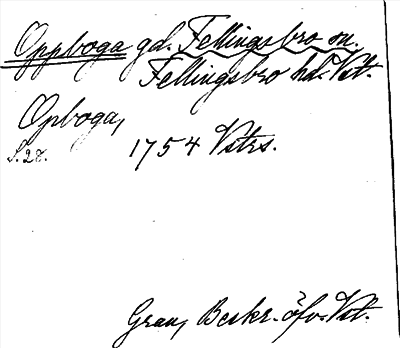 Oppboga gd. Fellingsbro sn.
Fellingsbro hd. Vst.
Opboga,
S. 28. 1754 Vstrs.
Grau, Beskr. öfv. Vst.